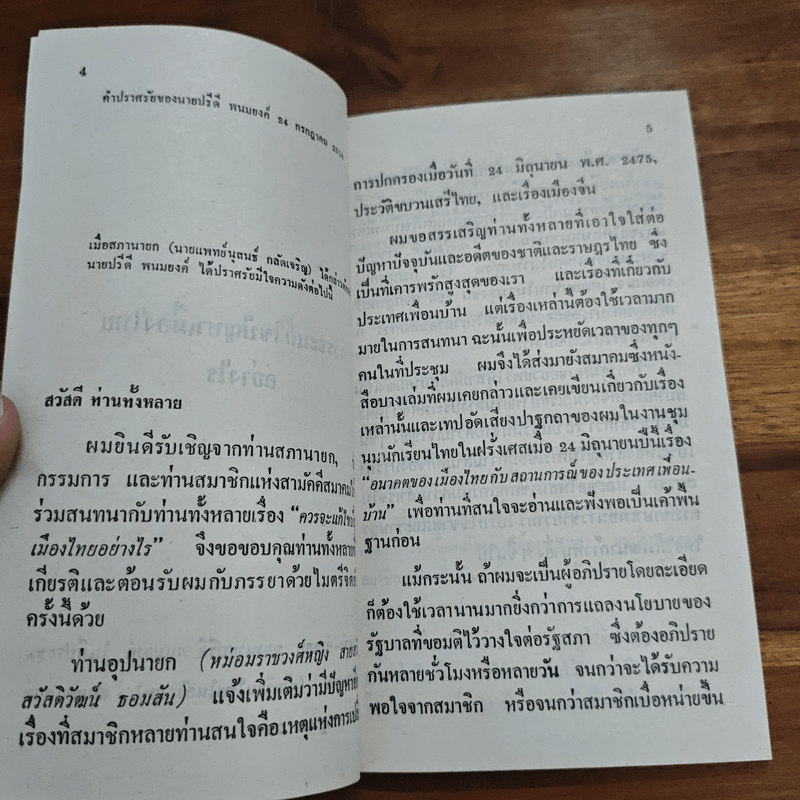 4
คำปราศรัยของนายปรีดี พนมยงค์ 24 กรกฎาคม
เมื่อสภานายก (นายแพทย์นุสนธิ์ กลัดเจริญ)
นายปรีดี พนมยงค์ ได้ปราศรัยมีใจความดังต่อไปนี้
สวัสดี ท่านทั้งหลาย
ผมยินดีรับเชิญจากท่านสภานายก,
กรรมการ และท่านสมาชิกแห่งสามัคคีสมาคม
ร่วมสนทนากับท่านทั้งหลายเรื่อง “ควรจะแก้ไข
เมืองไทยอย่างไร” จึงขอขอบคุณท่านทั้งหลาย
เกียรติและต้อนรับผมกับภรรยาด้วยไมตรีจิต
ครั้งนี้ด้วย
ท่านอุปนายก (หม่อมราชวงศ์หญิง
สวัสดิวัฒน์ ธอมสัน) แจ้งเพิ่มเติมว่ามีปัญหา
เรื่องที่สมาชิกหลายท่านสนใจคือเหตุแห่งการ
5
การปกครองเมื่อวันที่ 24 มิถุนายน พ.ศ. 2475,
ประวัติขบวนเสรีไทย, และเรื่องเมืองจีน
ผมขอสรรเสริญท่านทั้งหลายที่เอาใจใส่ต่อ
ปัญหาปัจจุบันและอดีตของชาติและราษฎรไทย ซึ่ง
เป็นที่เคารพรักสูงสุดของเรา และเรื่องที่เกี่ยวกับ
ประเทศเพื่อนบ้าน แต่เรื่องเหล่านี้ต้องใช้เวลามาก
มายในการสนทนา ฉะนั้นเพื่อประหยัดเวลาของทุกๆ
คนในที่ประชุม ผมจึงได้ส่งมายังสมาคมซึ่งหนัง-
สือบางเล่มที่ผมเคยกล่าวและเคยเขียนเกี่ยวกับเรื่อง
เหล่านั้นและเทปอัดเสียงปาฐกถาของผมในงานชุม
นุมนักเรียนไทยในฝรั่งเศสเมื่อ 24 มิถุนายนปีนี้เรื่อง
“อนาคตของเมืองไทยกับสถานการณ์ของประเทศเพื่อน-
บ้าน” เพื่อท่านที่สนใจจะอ่านและฟังพอเป็นเค้าพื้น
ฐานก่อน
แม้กระนั้น ถ้าผมจะเป็นผู้อภิปรายโดยละเอียด
ก็ต้องใช้เวลานานมากยิ่งกว่าการแถลงนโยบายของ
รัฐบาลที่ขอมติไว้วางใจต่อรัฐสภา ซึ่งต้องอภิปราย
กันหลายชั่วโมงหรือหลายวัน จนกว่าจะได้รับความ
พอใจจากสมาชิก หรือจนกว่าสมาชิกเบื่อหน่ายขึ้น